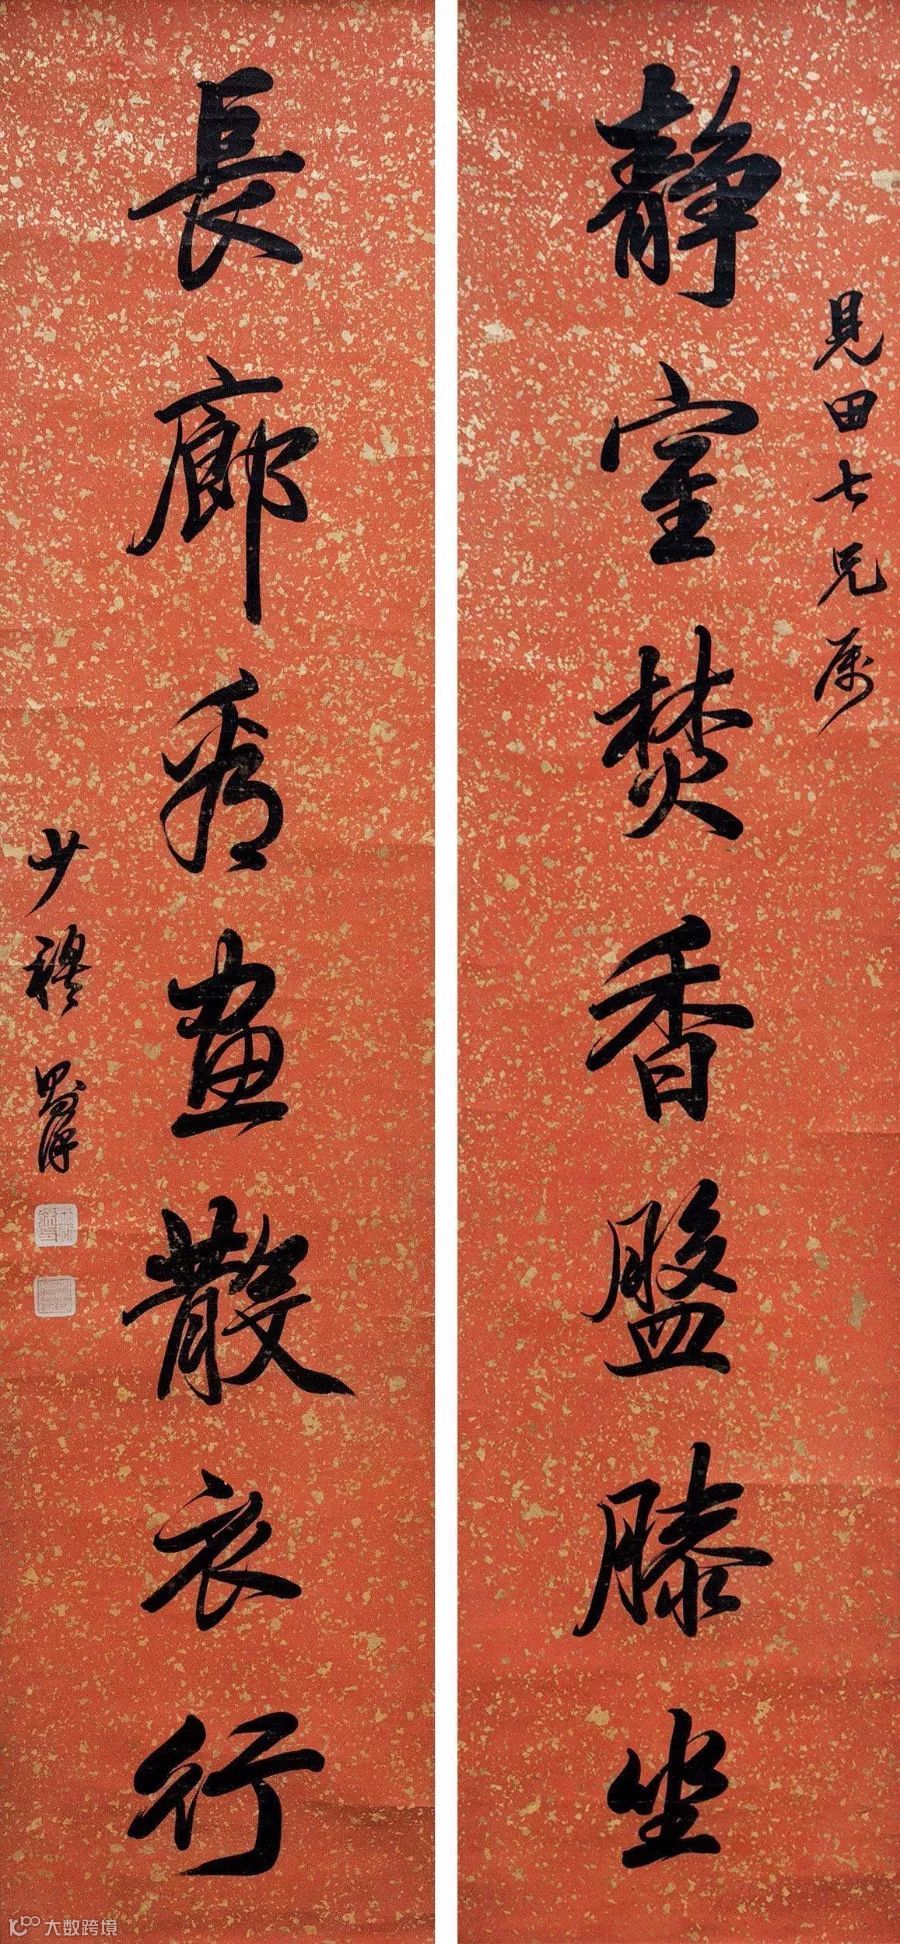 靜室焚香盤膝坐
見田七兄屬
長廊看畫散衣行
少穆
大数跨境